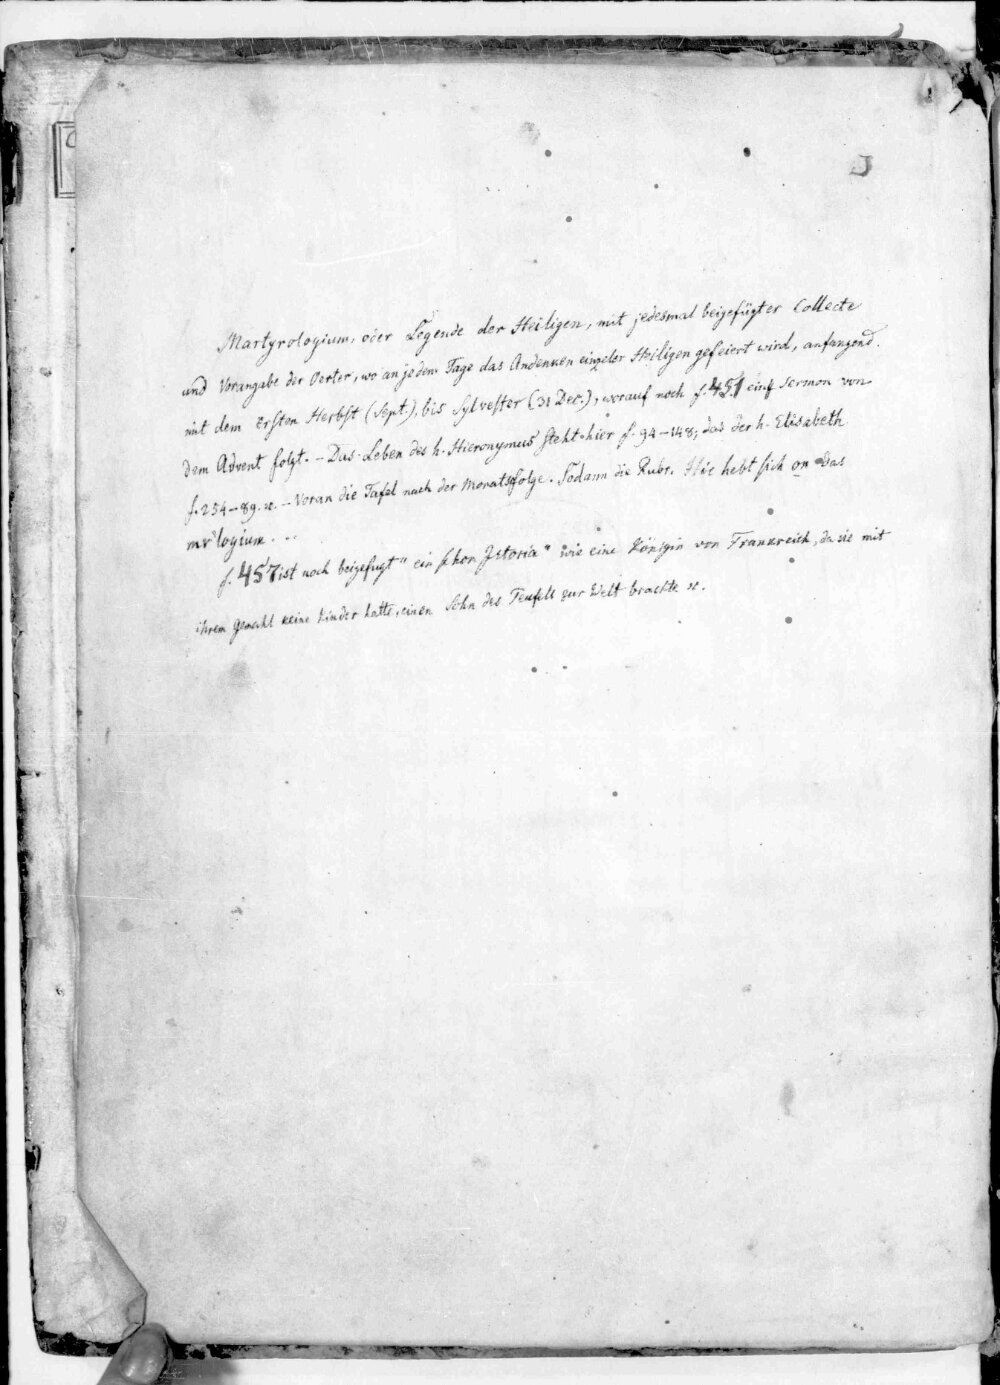 Martyrologium, oder Legende der Heiligen, mit jedesmal beigefügter Collecte
und Vorangabe der Oerter, wo an jedem Tage das Andenken einzeler Heiligen gefeiert wird, anfangend
mit dem ersten Herbst (Sept.), bis Sylvester (31 Dec.), worauf noch f. 451 ein Sermon von
dem Advent folgt. – Das Leben des h. Hieronymus steht hier f. 94–148, das der h. Elisabeth
f. 254–89. ꝛc. – Voran die Tafel nach der Monatsfolge. Sodann die Rubr. Hie hebt sich an das
mr̃logium . . .
f. 457 ist noch beigefugt "ein schon Jstoria" wie eine Königin von Frankreich, da sie mit
ihrem Gemahl keine Kinder hatte, einen Sohn des Teufels zur Welt brachte ꝛc.